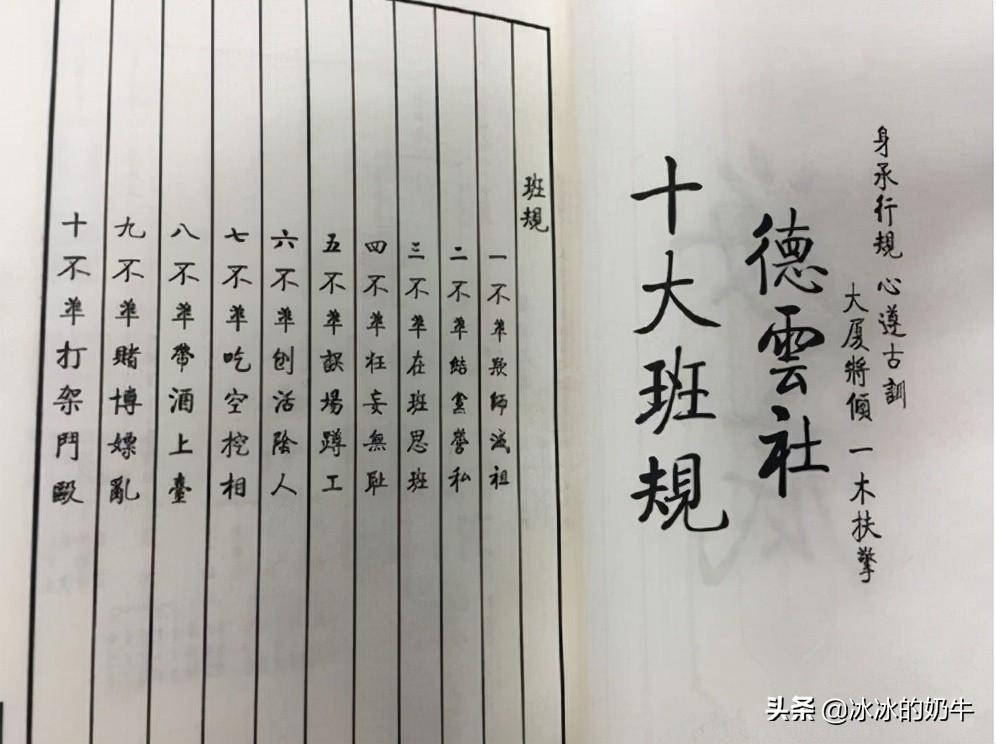 身承行規 心遵古訓
大厦將傾 一木扶擎
德雲社
十大班規
班規
一不準欺師滅祖
二不準結黨營私
三不準在班思班
四不準狂妄無恥
五不準誤場蹲工
六不準刨活陰人
七不準吃空挖相
八不準帶酒上臺
九不準賭博嫖亂
十不準打架鬥毆
头条 @冰冰的奶牛